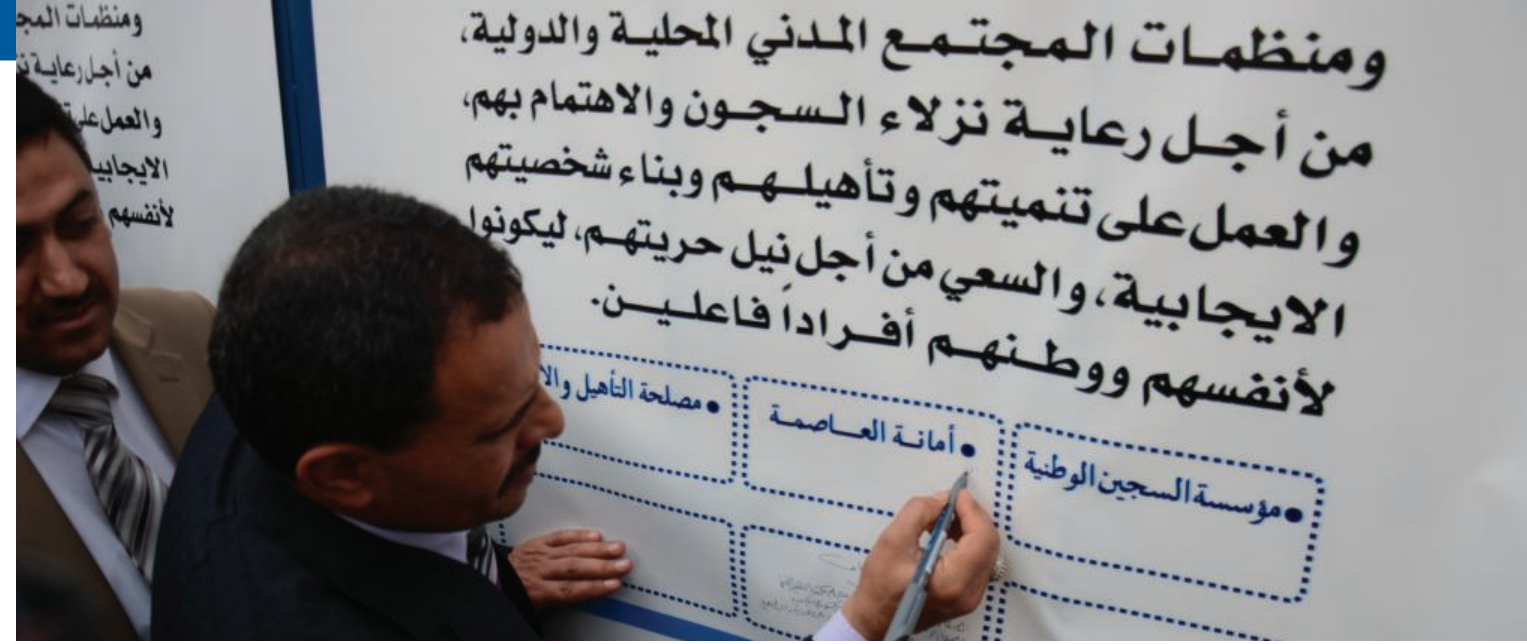 ومنظمات المجتمع المدني المحلية والدولية،
من أجل رعاية نزلاء السجون والاهتمام بهم،
والعمل على تنميتهم وتأهيلهم وبناء شخصيتهم
الايجابية، والسعي من أجل نيل حريتهم، ليكونوا
لأنفسهم ووطنهم أفراداً فاعلين.
• مؤسسة السجين الوطنية
• أمانة العاصمة
• مصلحة التأهيل
ومنظمات
من أجل رعاية
والعمل على
لأنفسهم